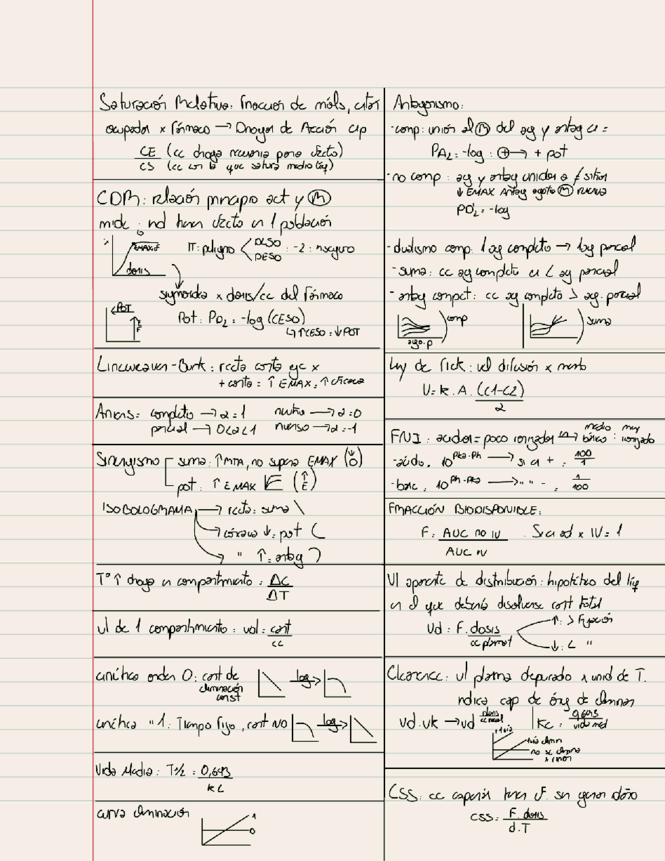 Saturación Relativa: Fracción de móls, citor
ocupador x Fármaco → Drogor de Acción cip
CE (cc droga necesaria para efecto)
CS (cc con la que satura media
CDR: relación principio act y (R)
mide: nd hacen efecto en 1 población
%
EMAX
dosis
IT: peligro < DL50 / DE50 : -2: inseguro
sigmoidea x dosis/cc del Fármaco
POT
E
Pot: PD2 = -log (CE50)
↳ ↑CE50: ↓POT
Lineweaver-Burk: recta corta eje x
+ corta = ↑ EMAX, ↑ eficacia
completo → α = 1 neutro → α = 0
parcial → 0<α<1 inverso → α = -1
Sinergismo suma: ↑ , no supera EMAX
pot: ↑ EMAX (↑E)
ISOBOLOGRAMA → recta: suma \
cóncava ↓: pot (
" ↑: antag )
T° ↑ droga en compartimento = ΔC
ΔT
vl de 1 compartimento: vol = cant
cc
cinética orden 0: cant de
eliminación
const
log →
cinética "1: Tiempo fijo, cant NO
log →
Vida Media: T½ = 0,693
KE
curva eliminación
1
0
Antagonismo:
- comp: unión al (R) del ag y antag es =
PA2 = -log : → + pot
- no comp: ag y antag unidos a ≠ sitios
↓ EMAX Antag agota (R) reserva
PD'2 = -log
- dualismo comp: 1 ag completo → 1 ag parcial
- suma: cc ag completo es < ag parcial
- antag compet: cc ag completo > ag. parcial
comp
ago.p
suma
Ley de Fick: vel difusión x memb
V = K . A . (C1-C2)
2
FNI: ácidos = poco ionizados medio básico: muy ionizado
- ácido . 10^PKa-PH → si es + , 100
1
- base , 10^PH-PKa → " " - , 1
100
FRACCIÓN BIODISPONIBLE:
F = AUC no IV . Si es ad x IV = 1
AUC IV
Vl aparente de distribución: hipotético del líq
en el que debería disolverse cant total
Vd = F. dosis ↑: > Fijación
cc plasmat ↓: < "
Clearence: vl plasma depurado x unid de T.
indica cap de órg de eliminar
Vd . VK → Vd dosis / cc real Ke = 0,693 / vida med
no se elimina
x riñon
CSS: cc capaz hacer F. sin generar daño
CSS = F. dosis
d.T